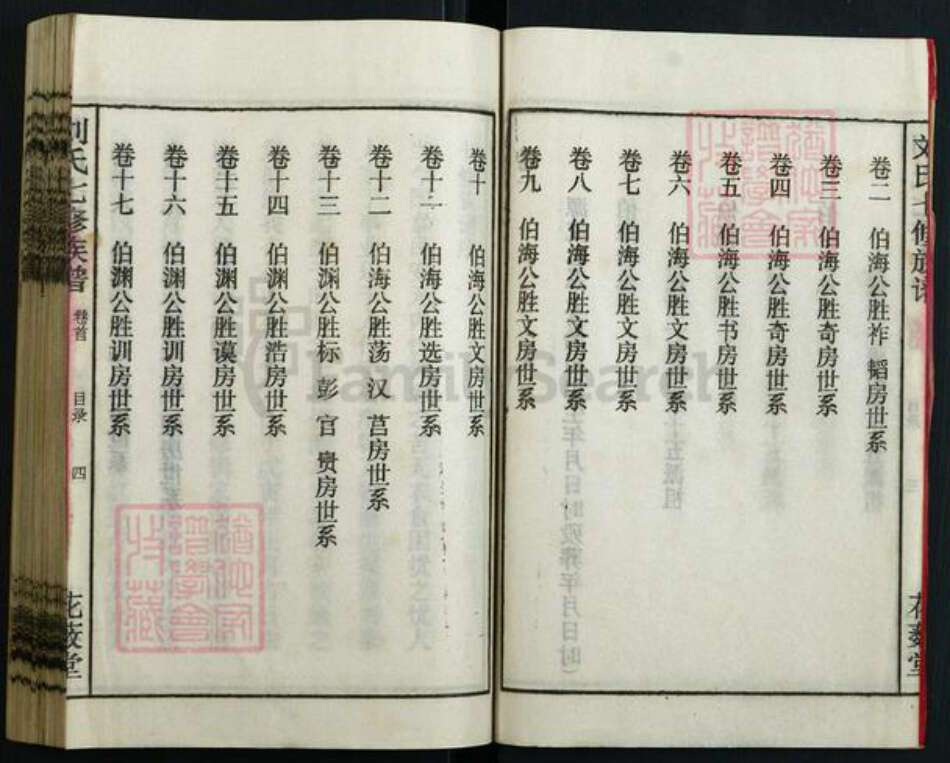 卷二 伯海公胜祚 韬房世系
卷三 伯海公胜奇房世系
卷四 伯海公胜奇房世系
卷五 伯海公胜书房世系
卷六 伯海公胜文房世系
卷七 伯海公胜文房世系
卷八 伯海公胜文房世系
卷九 伯海公胜文房世系
卷十 伯海公胜文房世系
卷十一 伯海公胜选房世系
卷十二 伯海公胜荡 汉 莒房世系
卷十三 伯渊公胜标 彭 官 贵房世系
卷十四 伯渊公胜浩房世系
卷十五 伯渊公胜谟房世系
卷十六 伯渊公胜训房世系
卷十七 伯渊公胜训房世系
刘氏七修族谱 卷首 目录 四 花萼堂
FamilySearch